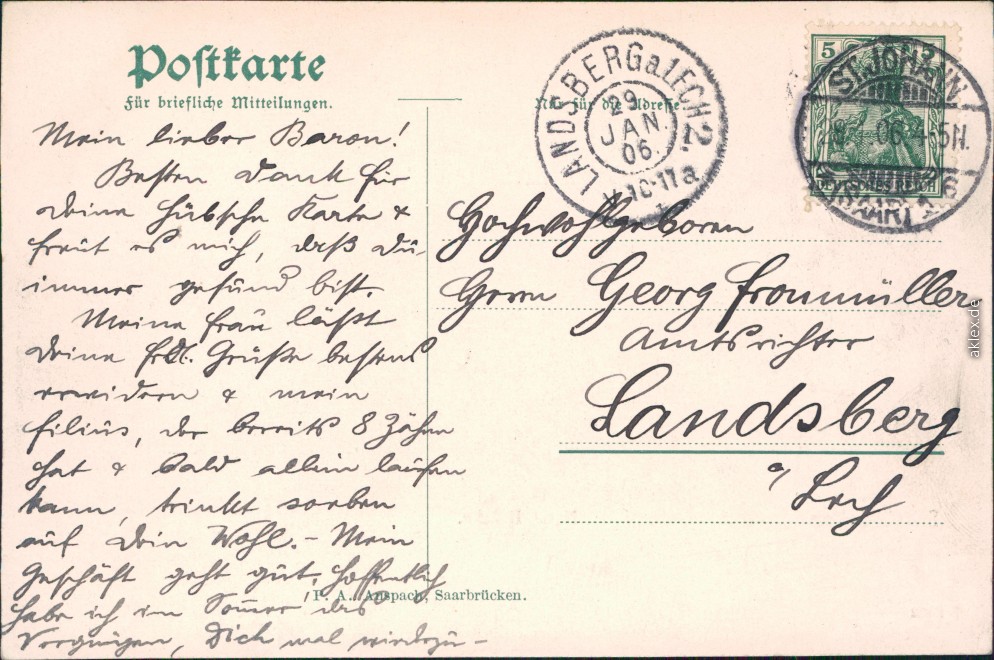 Postkarte
Für briefliche Mitteilungen.
Nur für die Adresse
LANDSBERG a/LECH 2.
29
JAN.
06.
10-11 a
5
5
DEUTSCHES REICH
ST. JOHANN
06. 4-5N.
(SAAR) 1
Mein lieber Baron!
Besten Dank für
Deine hübsche Karte &
freut es mich, daß Du
immer gesund bist.
Meine Frau läßt
Deine frdl. Grüße bestens
erwidern & mein
filius, der bereits 8 Zähne
hat & bald allein laufen
kann, trinkt soeben
auf Dein Wohl. – Mein
Geschäft geht gut, hoffentlich
habe ich im Sommer das
Vergnügen, Dich mal wiederzu-
Hochwohlgeboren
Herrn Georg Fronmüller,
Amtsrichter
Landsberg
a/ Lech
P. A. Anspach, Saarbrücken.
aklex.de